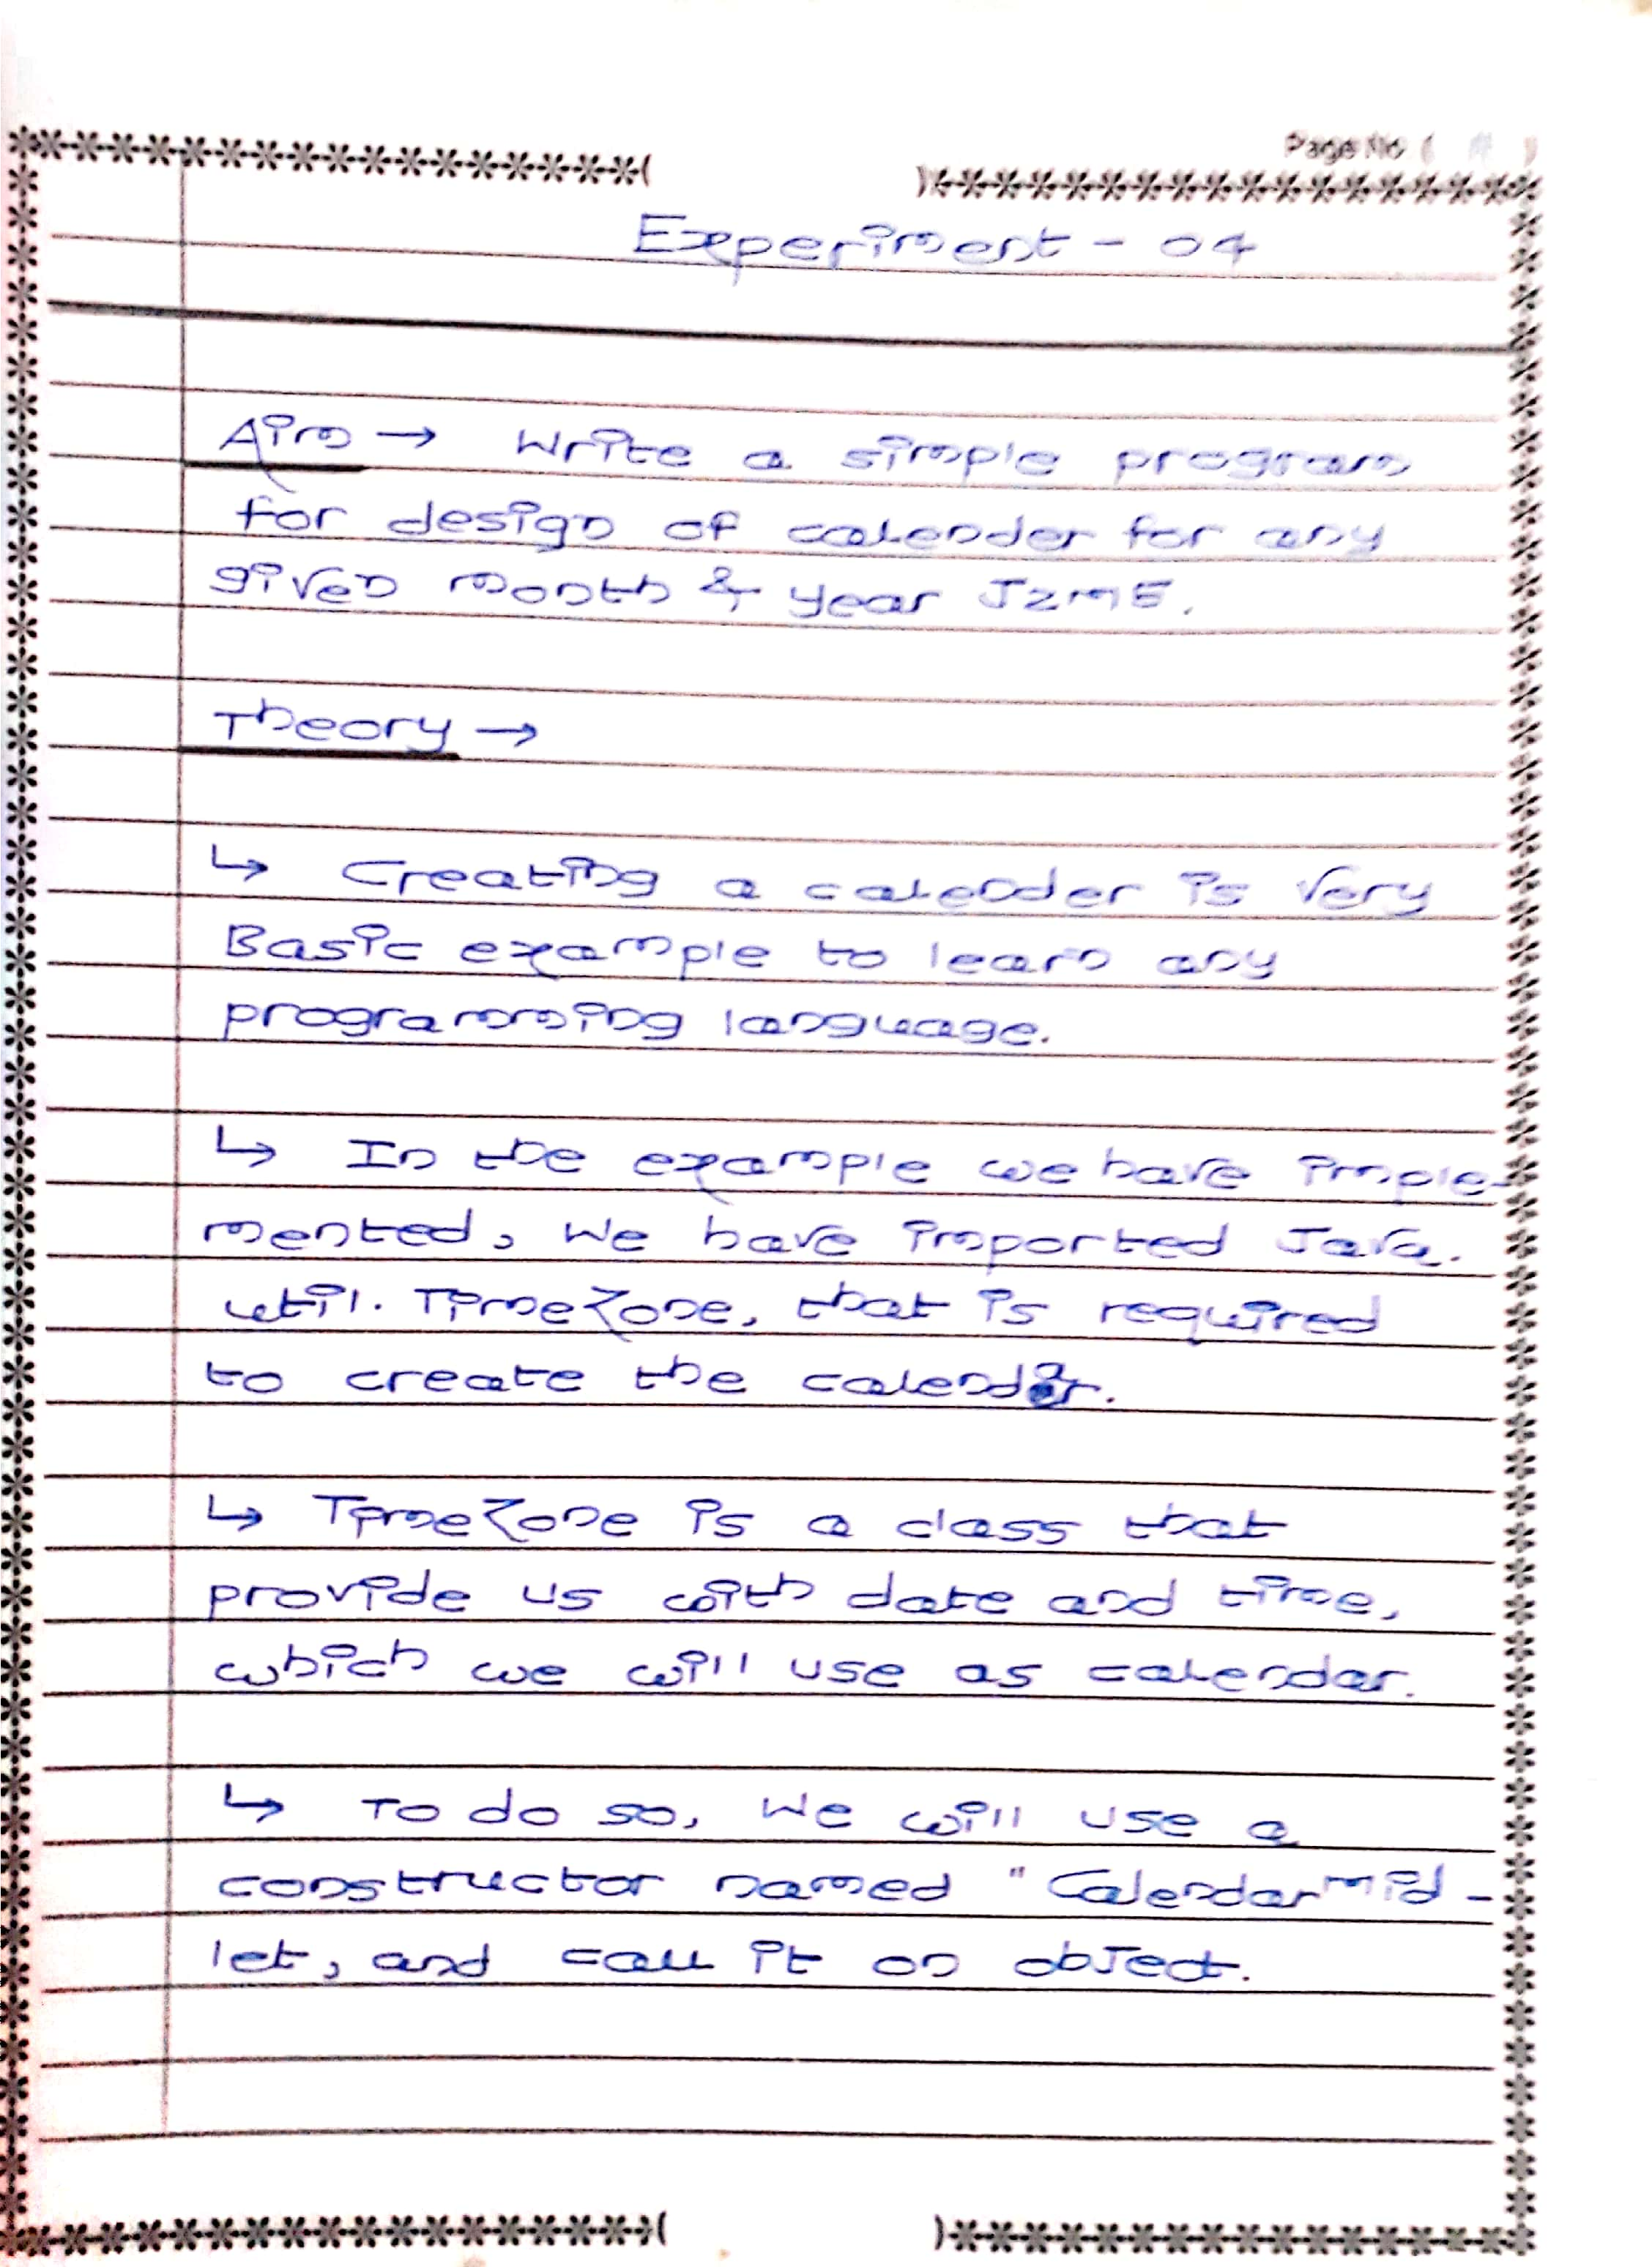 Page No ( )
Experiment - 04
Aim → Write a simple program
for design of calender for any
given month & year J2ME.
Theory →
↳ Creating a calender is very
Basic example to learn any
programming language.
↳ In the example we have imple-
mented, We have imported Java.
util. TimeZone, that is required
to create the calendar.
↳ TimeZone is a class that
provide us with date and time,
which we will use as calendar.
↳ To do so, We will use a
constructor named " Calendarmid-
let, and call it on object.